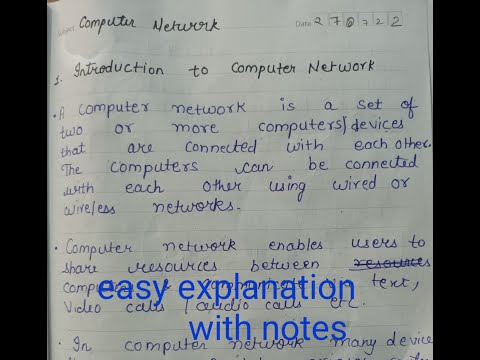 Subject Computer Network Date 27 0 7 2 2
1. Introduction to Computer Network
• A computer network is a set of
two or more computers/devices
that are connected with each other.
The computers can be connected
with each other using wired or
wireless networks.
• Computer network enables users to
share resources between resources
computers communicate via text,
Video calls / audio calls etc.
easy explanation
with notes
• In computer network many device